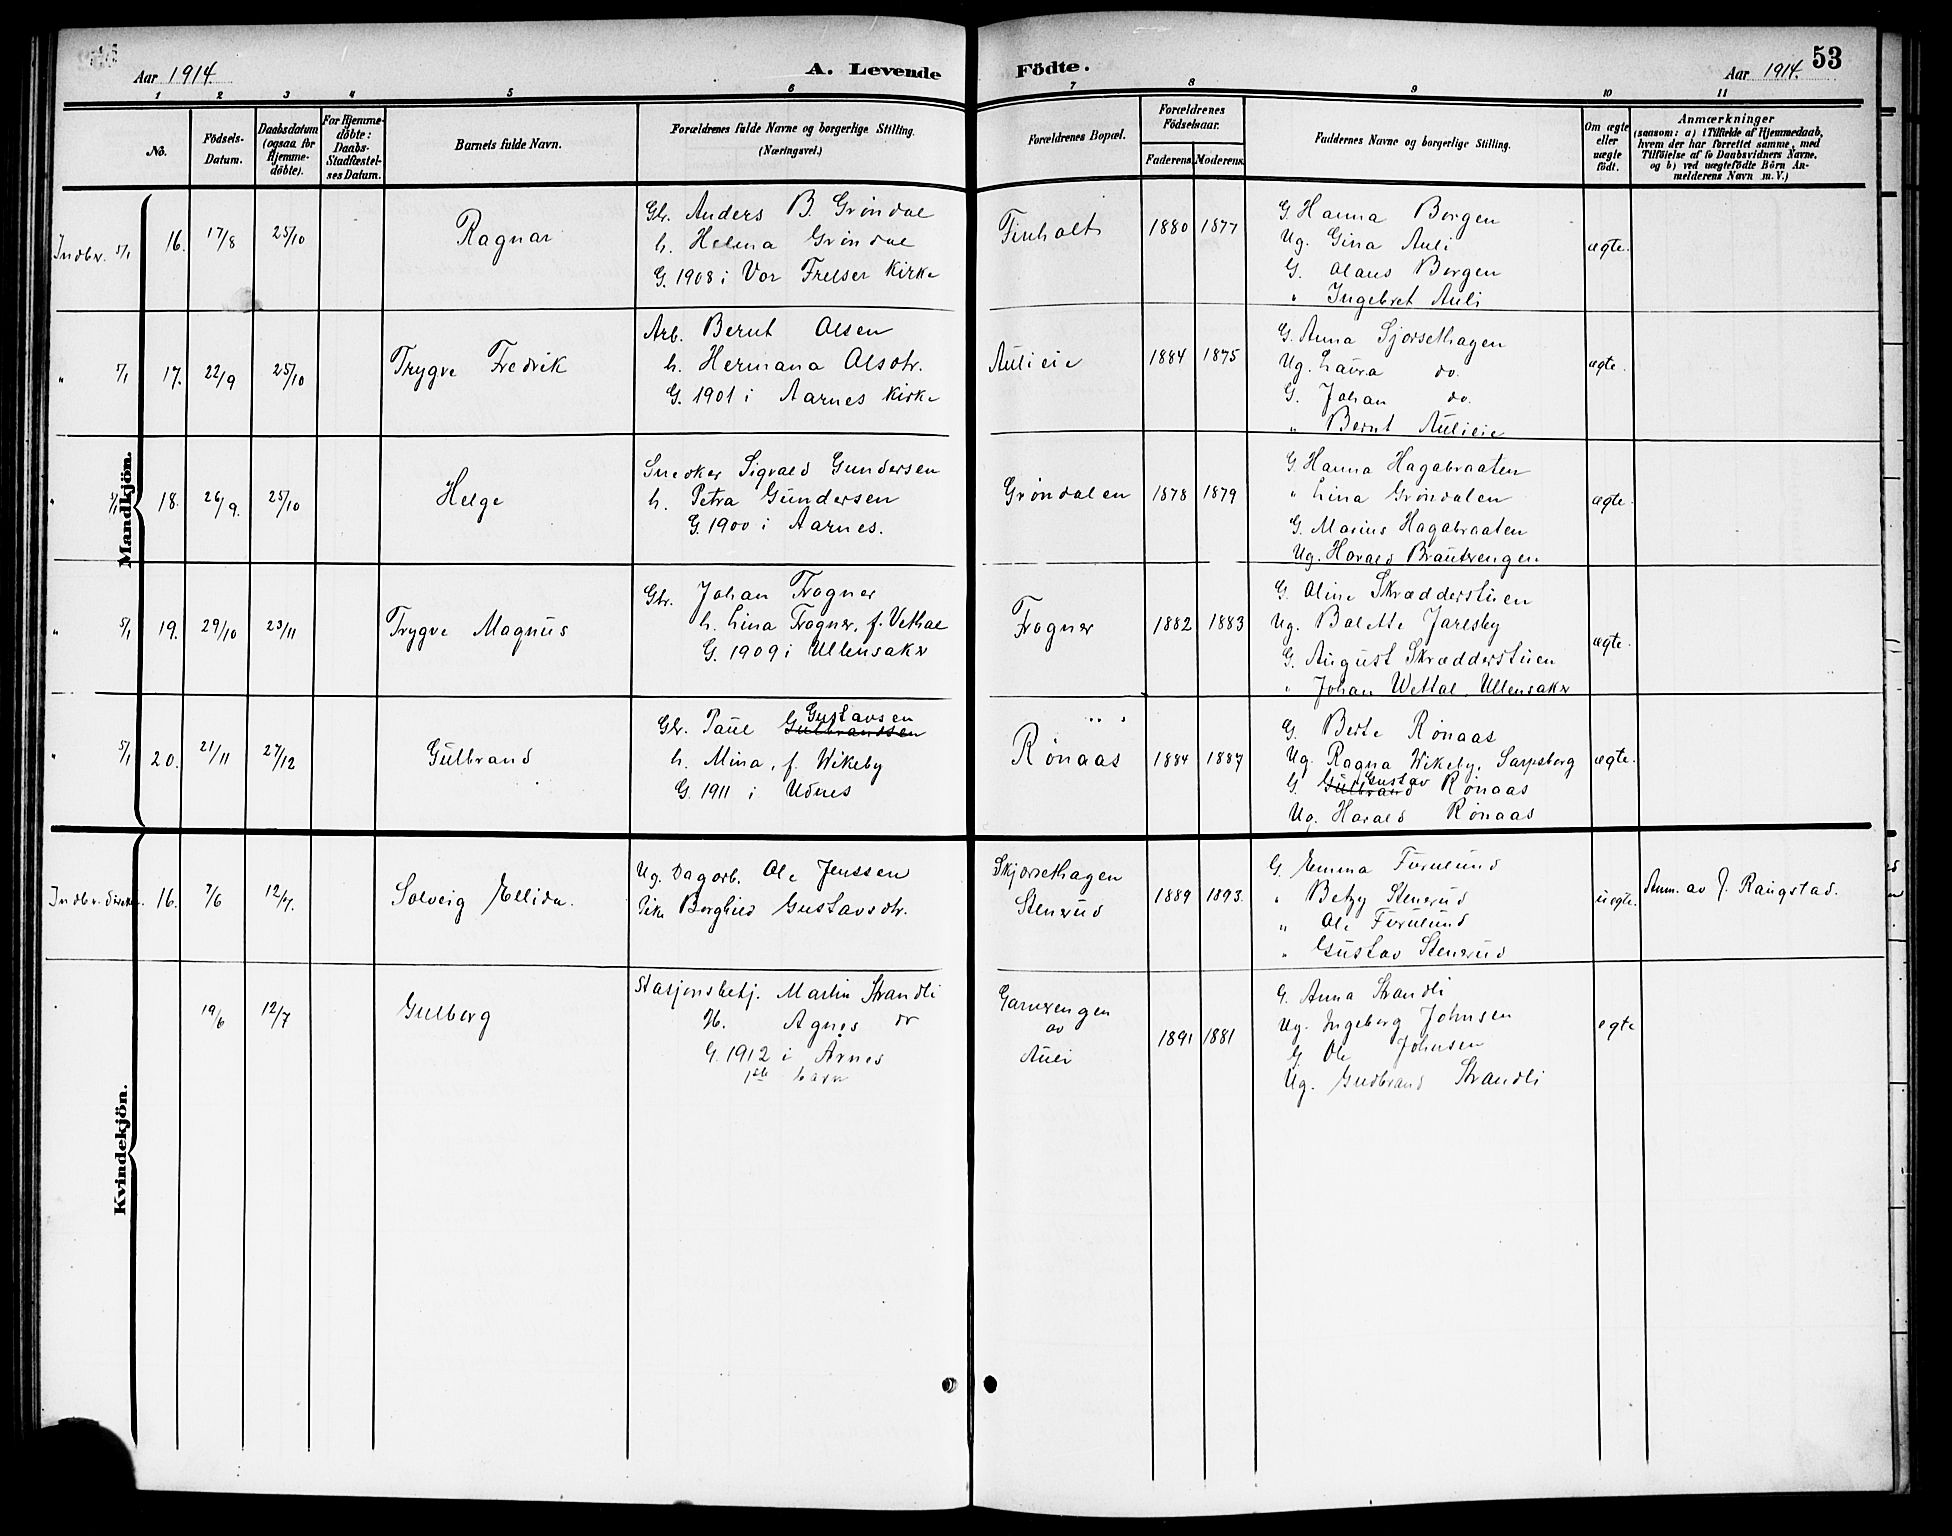 Aar 1914. A. Levende Födte. Aar 1914. 53
1 2 3 4 5 6 7 8 9 10 11
No.
Födsels-Datum.
Daabsdatum (ogsaa for Hjemme-döbte).
For Hjemme-döbte: Daabs-Stadfæstel-ses Datum.
Barnets fulde Navn.
Forældrenes fulde Navne og borgerlige Stilling.
(Næringsvei.)
Forældrenes Bopæl.
Forældrenes Födselsaar.
Faderens. Moderens.
Faddernes Navne og borgerlige Stilling.
Om ægte eller uægte födt.
Anmærkninger
(saasom: a) i Tilfælde af Hjemmedaab,
hvem der har forrettet samme, med
Tilföielse af to Daabsvidners Navne,
og b) ved uægtefödte Börn An-
melderens Navn m. V.)
Mandkjön.
Indbr. 5/1 16. 17/8 25/10 Ragnar
Gbr. Anders B. Grøndal
h. Helma Grøndal
G. 1908 i Vor Frelser Kirke
Finholt 1880 1877
G. Hanna Borgen
Ug. Gina Auli
G. Olaus Borgen
" Ingebret Auli
ægte.
" 5/1 17. 22/9 25/10 Trygve Fredrik
Arb. Bernt Olsen
h. Hermana Olsdtr.
G. 1901 i Aarnes Kirke
Aulieie 1884 1875
G. Anna Sjorsethagen
Ug. Laura do.
G. Johan do.
" Bernt Aulieie
ægte.
" 5/1 18. 26/9. 25/10 Helge
Snedker Sigvald Gundersen
h. Petra Gundersen
G. 1900 i Aarnes.
Grøndalen 1878 1879
G. Hanna Hagabraaten
" Lina Grøndalen
G. Marius Hagabraaten
Ug. Harald Brautrengen
ægte.
" 5/1 19. 29/10 23/11 Trygve Magnus
Gbr. Johan Frogner
h. Lina Frogner, f. Vethal
G. 1909 i Ullensaker
Frogner 1882 1883
G. Oline Skrædderstuen
Ug. Balette Jarlsby
G. August Skrædderstuen
" Johan Wettal, Ullensaker
ægte.
" 5/1 20. 21/11 27/12 Gulbrand
Gustavsen
Gbr. Paul Gulbrandsen
h. Mina, f. Wikeby
G. 1911 i Udnes
Rønaas 1884 1887
G. Berte Rønaas
Ug. Ragna Wikeby, Sarpsborg
Gustav
G. Gulbrand Rønaas
Ug. Harald Rønaas
ægte.
Kvindekjön.
Indbr. direkte. 16. 7/6 12/7. Solveig Ellida.
Ug. Dagarb. Ole Jenssen
Pike Borghild Gustavsdtr.
Skjorsethagen
Stenrud
1889 1893.
G. Emma Furulund
" Betzy Stenrud
" Ole Furulund
" Gustav Stenrud
uegte. Anm. av J. Raugstad.
19/6 12/7 Gulborg
Stasjonsbetj. Martin Strandli
H. Agnes do
G. 1912 i Årnes
1ste barn
Garnrengen
av
Auli
1891 1881
G. Anna Strandli
Ug. Ingeborg Johnsen
G. Ole Johnsen
Ug. Gudbrand Strandli
egte